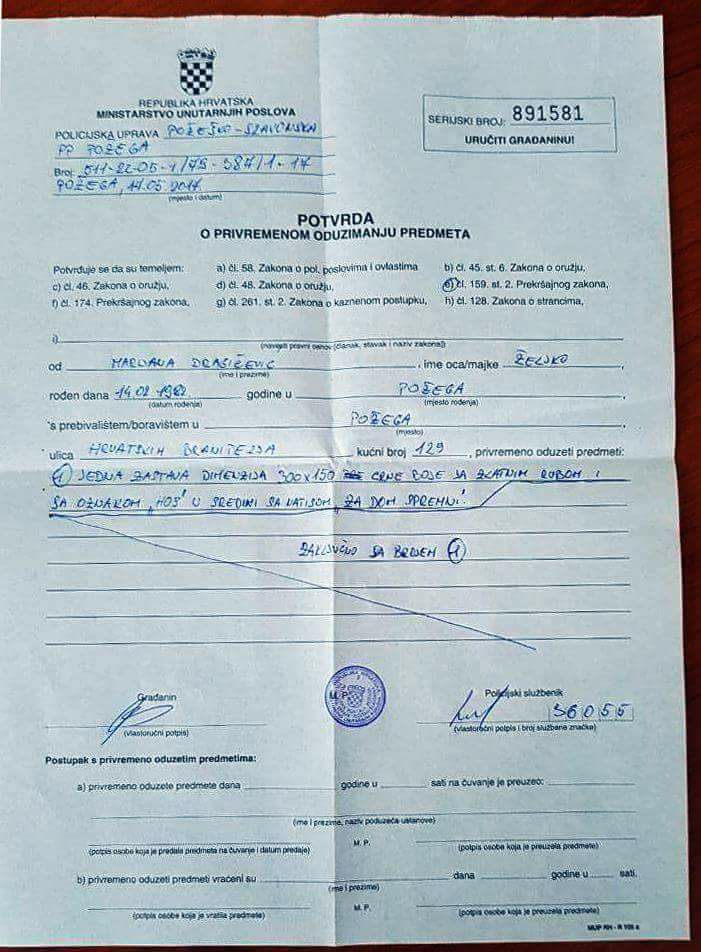 REPUBLIKA HRVATSKA
MINISTARSTVO UNUTARNJIH POSLOVA
POLICIJSKA UPRAVA POŽEŠKO-SLAVONSKA
PP POŽEGA
Broj: 511-22-05-1/75-387/1-17
POŽEGA, 14.05.2017.
(mjesto i datum)
SERIJSKI BROJ: 891581
URUČITI GRAĐANINU!
POTVRDA
O PRIVREMENOM ODUZIMANJU PREDMETA
Potvrđuje se da su temeljem: a) čl. 58. Zakona o pol. poslovima i ovlastima b) čl. 45. st. 6. Zakona o oružju,
c) čl. 46. Zakona o oružju, d) čl. 48. Zakona o oružju, e) čl. 159. st. 2. Prekršajnog zakona,
f) čl. 174. Prekršajnog zakona, g) čl. 261. st. 2. Zakona o kaznenom postupku, h) čl. 128. Zakona o strancima,
i)
(navesti pravni osnov (članak, stavak i naziv zakona))
od MARIJANA DRAŽIČEVIĆ, ime oca/majke ŽELJKO
(ime i prezime)
rođen dana 14.02.1982 godine u POŽEGA
(datum rođenja) (mjesto rođenja)
s prebivalištem/boravištem u POŽEGA
(mjesto)
ulica HRVATSKIH BRANITELJA kućni broj 129, privremeno oduzeti predmeti:
1 JEDNA ZASTAVA DIMENZIJA 300x150 CRNE BOJE SA ZLATNIM RUBOM I
SA OZNAKOM „HOS" U SREDINI SA NATPISOM „ZA DOM SPREMNI".
ZAKLJUČNO SA BROJEM 1
Građanin
(vlastoručni potpis)
M. P.
Policijski službenik
36055
(vlastoručni potpis i broj službene značke)
Postupak s privremeno oduzetim predmetima:
a) privremeno oduzete predmete dana godine u sati na čuvanje je preuzeo:
(ime i prezime, naziv poduzeća-ustanove)
M. P.
(potpis osobe koja je predala predmeta na čuvanje i datum predaje) (potpis osobe koja je preuzela predmete)
b) privremeno oduzeti predmeti vraćeni su dana godine u sati.
(ime i prezime)
M. P.
(potpis osobe koja je vratila predmete) (potpis osobe koja je preuzela predmete)